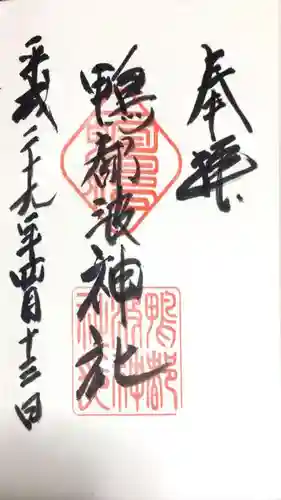 奉拝
鴨都波神社
平成二十九年四月十三日